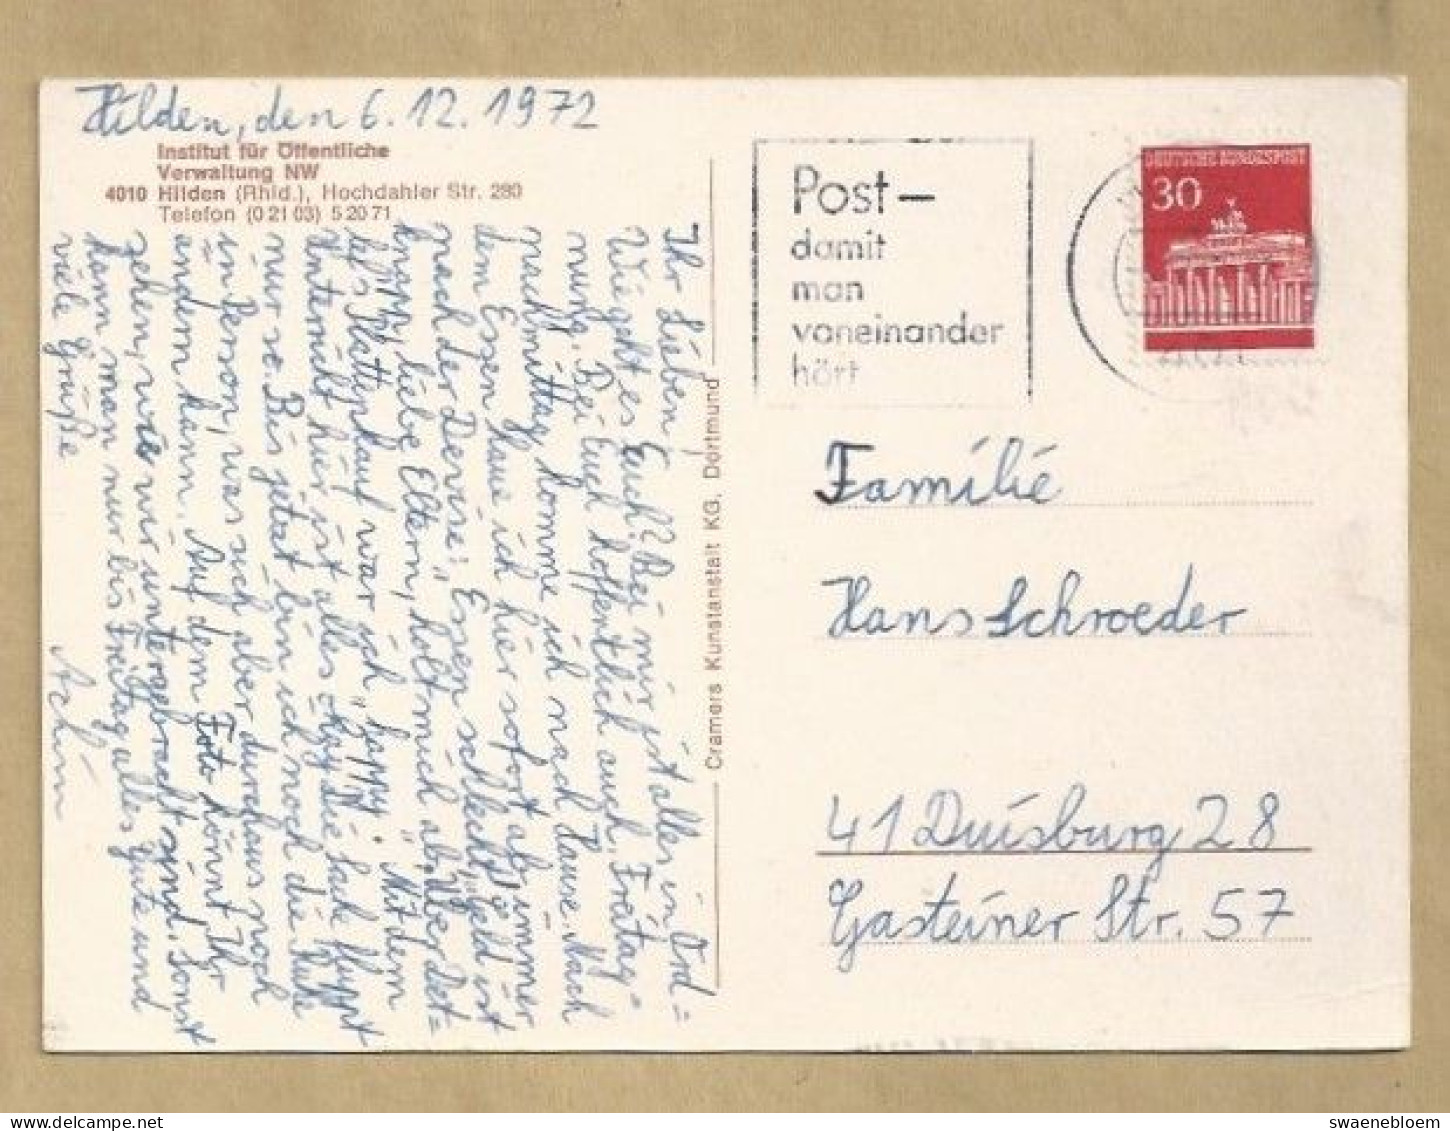 Hilden, den 6.12.1972
Institut für Öffentliche
Verwaltung NW
4010 Hilden (Rhld.), Hochdahler Str. 280
Telefon (0 21 03) 5 20 71
Ihr Lieben!
Wie geht es Euch? Bei mir ist alles in Ord=
nung. Bei Euch hoffentlich auch. Freitag=
nachmittag komme ich nach Hause. Nach
dem Essen haue ich hier sofort ab, immer
nach der Devise: „Essen schlecht, Geld ist
knapp, liebe Eltern, holt mich ab." Über Det=
lefs Plattenkauf war ich „happy". Mit dem
Unterricht hier ist alles okay. Die Sache fluppt
nur so. Bis jetzt bin ich noch die Ruhe
in Person, was sich aber durchaus noch
ändern kann. Auf dem Foto könnt Ihr
sehen, wo wir untergebracht sind. Sonst
kann man nur bis Freitag alles Gute und
viele Grüße
Achim
Cramers Kunstanstalt KG, Dortmund
Post –
damit
man
voneinander
hört
DEUTSCHE BUNDESPOST
30
Familie
Hans Schroeder
41 Duisburg 28
Gasteiner Str. 57
swaenebloem@delcampe.net